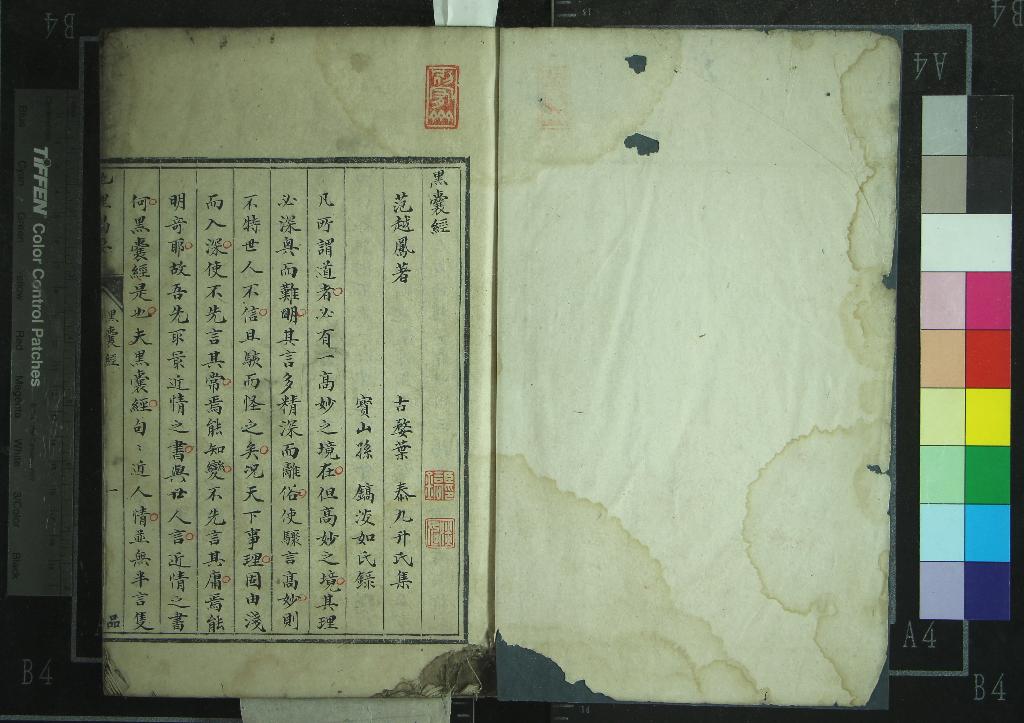 黑囊經
范越鳳著
古婺葉 泰九升氏集
寶山孫 鎬浚如氏錄
凡所謂道者必有一高妙之境在但高妙之境其理
必深奧而難明其言多精深而離俗使驟言高妙則
不特世人不信且駭而怪之矣况天下事理固由淺
而入深使不先言其常焉能知變不先言其庸焉能
明奇耶故吾先取最近情之書與世人言近情之書
何黑囊經是也夫黑囊經句〻近人情並無半言隻
黑囊經
一
TIFFEN Color Control Patches
Blue
Cyan
Green
Yellow
Red
Magenta
White
3/Color
Black
B4
A4
A4
B4
B4
B4